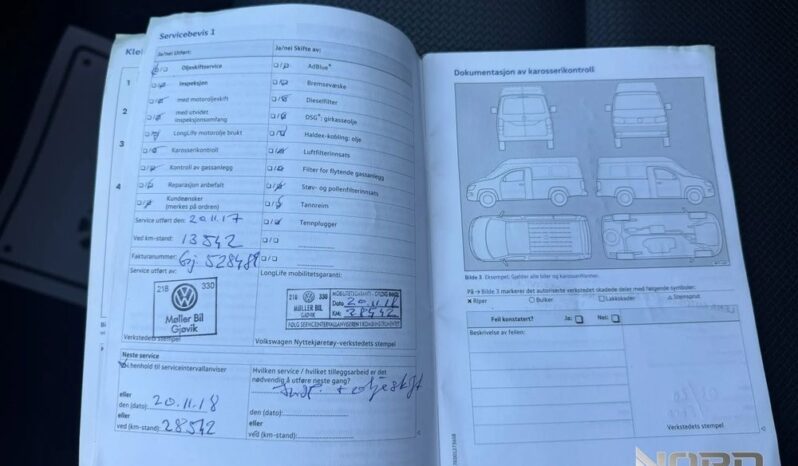 Servicebevis 1
Ja/nei Utført:
Oljeskiftservice
Inspeksjon
med motoroljeskift
med utvidet
inspeksjonsomfang
LongLife motorolje brukt
Karosserikontroll
Kontroll av gassanlegg
Reparasjon anbefalt
Kundeønsker
(merkes på ordren)
Service utført den: 20.11.17
Ved km-stand: 13542
Fakturanummer:
Service utført av:
218 330
Møller Bil
Gjøvik
Verkstedets stempel
Ja/nei Skifte av:
AdBlue®
Bremsevæske
Dieselfilter
DSG®: girkasseolje
Haldex-kobling: olje
Luftfilterinnsats
Filter for flytende gassanlegg
Støv- og pollenfilterinnsats
Tannreim
Tennplugger
LongLife mobilitetsgaranti:
218 330
MØLLER BIL
GJØVIK
Dato 20.11.18
KM: 28542
Volkswagen Nyttekjøretøy-verkstedets stempel
Neste service
I henhold til serviceintervallanviser
eller
20.11.18
den (dato):
eller
ved (km-stand): 28542
Hvilken service / hvilket tilleggsarbeid er det
nødvendig å utføre neste gang?
+ oljeskift
eller
den (dato):
eller
ved (km-stand):
1
2
3
4
Dokumentasjon av karosserikontroll
Bilde 3 Eksempel. Gjelder alle biler og karosseriformer.
På → Bilde 3 markerer det autoriserte verkstedet skadede deler med følgende symboler:
Riper Bulker Lakkskader Steinsprut
Feil konstatert? Ja: Nei:
Beskrivelse av feilen:
Verkstedets stempel
NORD